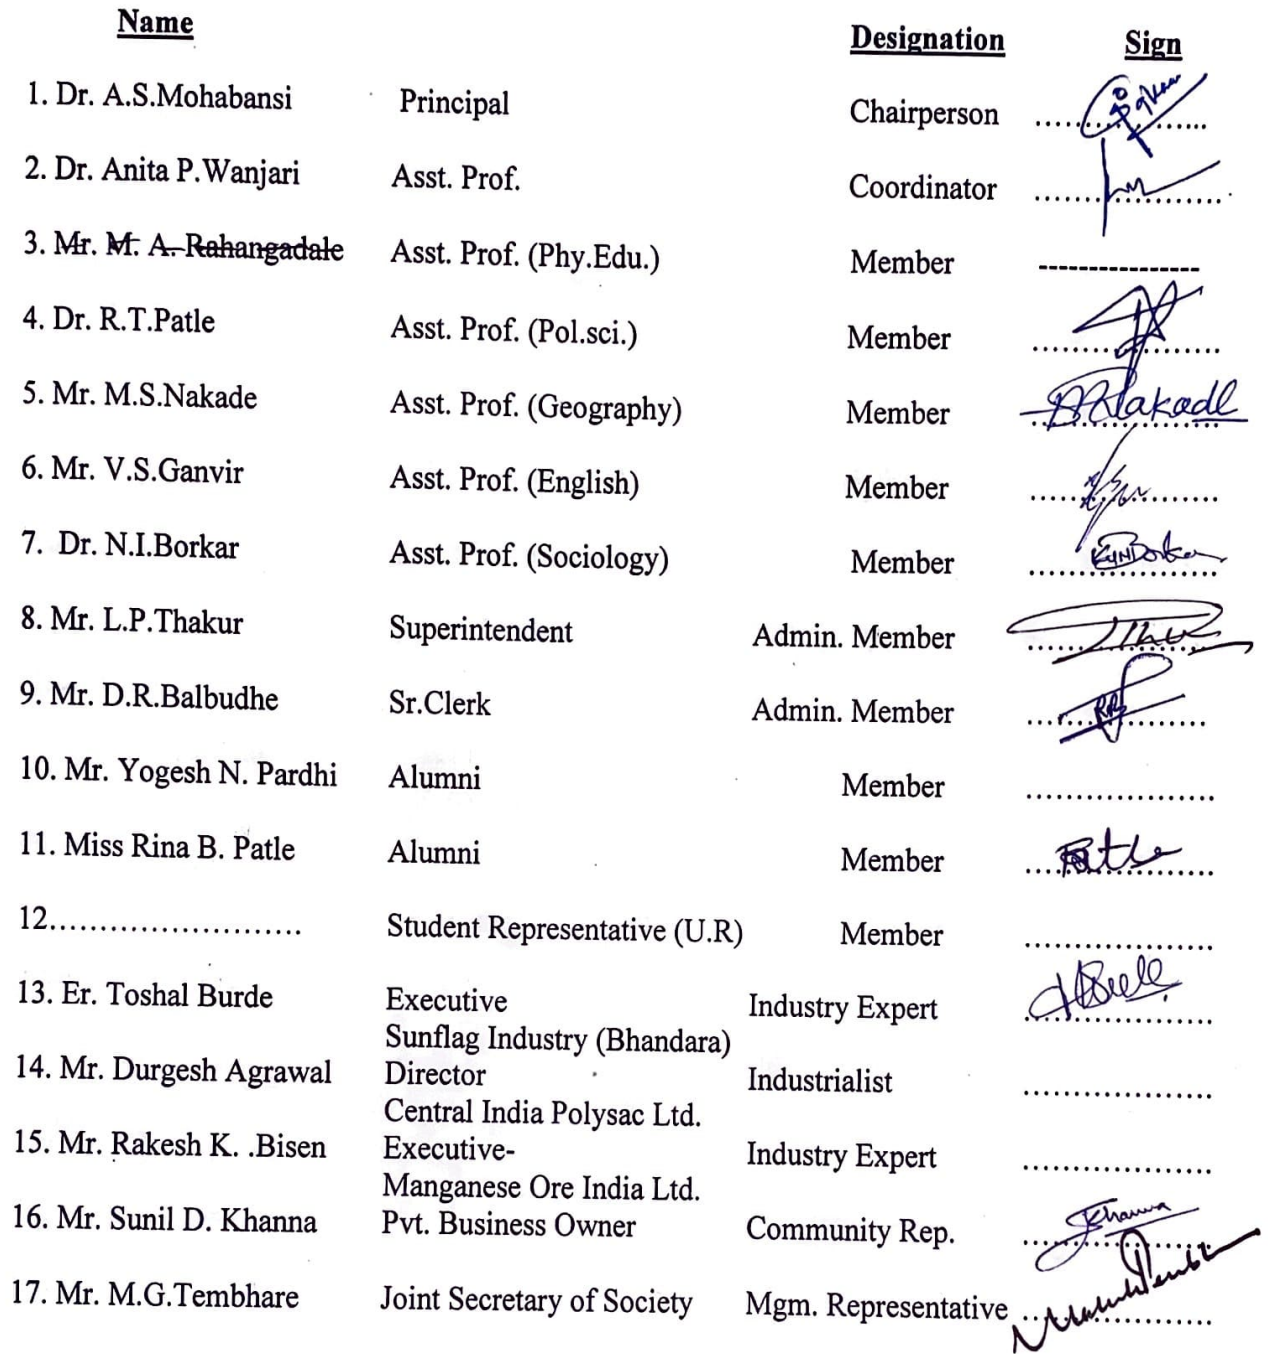 Name Designation Sign
1. Dr. A.S.Mohabansi Principal Chairperson
2. Dr. Anita P.Wanjari Asst. Prof. Coordinator ....................
3. Mr. M. A. Rahangadale Asst. Prof. (Phy.Edu.) Member ----------------
4. Dr. R.T.Patle Asst. Prof. (Pol.sci.) Member
5. Mr. M.S.Nakade Asst. Prof. (Geography) Member Nakade
6. Mr. V.S.Ganvir Asst. Prof. (English) Member
7. Dr. N.I.Borkar Asst. Prof. (Sociology) Member Borkar
8. Mr. L.P.Thakur Superintendent Admin. Member
9. Mr. D.R.Balbudhe Sr.Clerk Admin. Member
10. Mr. Yogesh N. Pardhi Alumni Member ...................
11. Miss Rina B. Patle Alumni Member Patle
12......................... Student Representative (U.R) Member ...................
13. Er. Toshal Burde Executive Industry Expert
Sunflag Industry (Bhandara)
14. Mr. Durgesh Agrawal Director Industrialist ...................
Central India Polysac Ltd.
15. Mr. Rakesh K. .Bisen Executive- Industry Expert ...................
Manganese Ore India Ltd.
16. Mr. Sunil D. Khanna Pvt. Business Owner Community Rep. Khanna
17. Mr. M.G.Tembhare Joint Secretary of Society Mgm. Representative